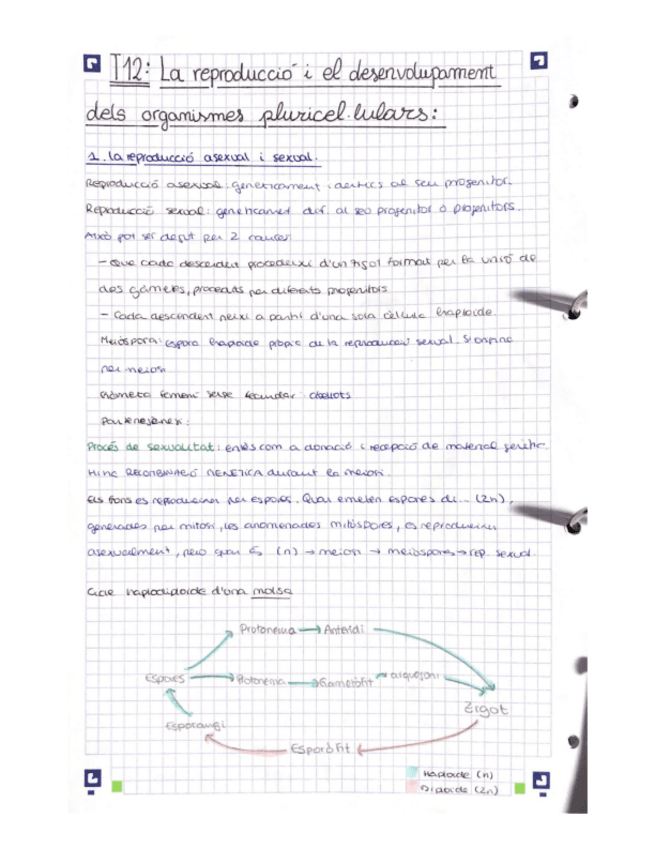 T12: La reproducció i el desenvolupament
dels organismes pluricel·lulars:
1. La reproducció asexual i sexual.
Reproducció asexual: geneticament idèntics al seu progenitor.
Reproducció sexual: geneticament dif. al seo progenitor o progenitors.
Això pot ser degut per 2 causes:
- Que cada descendent procedeixi d'un zigot format per la unió de
dos gàmetes, procedents per diferents progenitors
- Cada descendent neixi a partir d'una sola cèl·lula haploide.
Meiòspora: espora haploide pròpia de la reproducció sexual. S'origina
per meiosi
Gàmeta femení sense fecundar:
Partenogènesi:
Procés de sexualitat: entès com a donació i recepció de material genètic
Hi ha RECOMBINACIÓ GENÈTICA durant la meiosi.
Els fons es reprodueixen per espores. Quan emeten espores di... (2n),
generades per mitosi, les anomenades mitòspores, es reprodueixen
asexualment, però quan és (n) → meiosi → meiòspores → rep. sexual.
Cicle haplodiploide d'una molsa
Protonema → Anteridi
Espores → Protonema → Gametòfit → arquegoni
Zigot
Esporangi
Esporòfit
Haploide (n)
Diploide (2n)